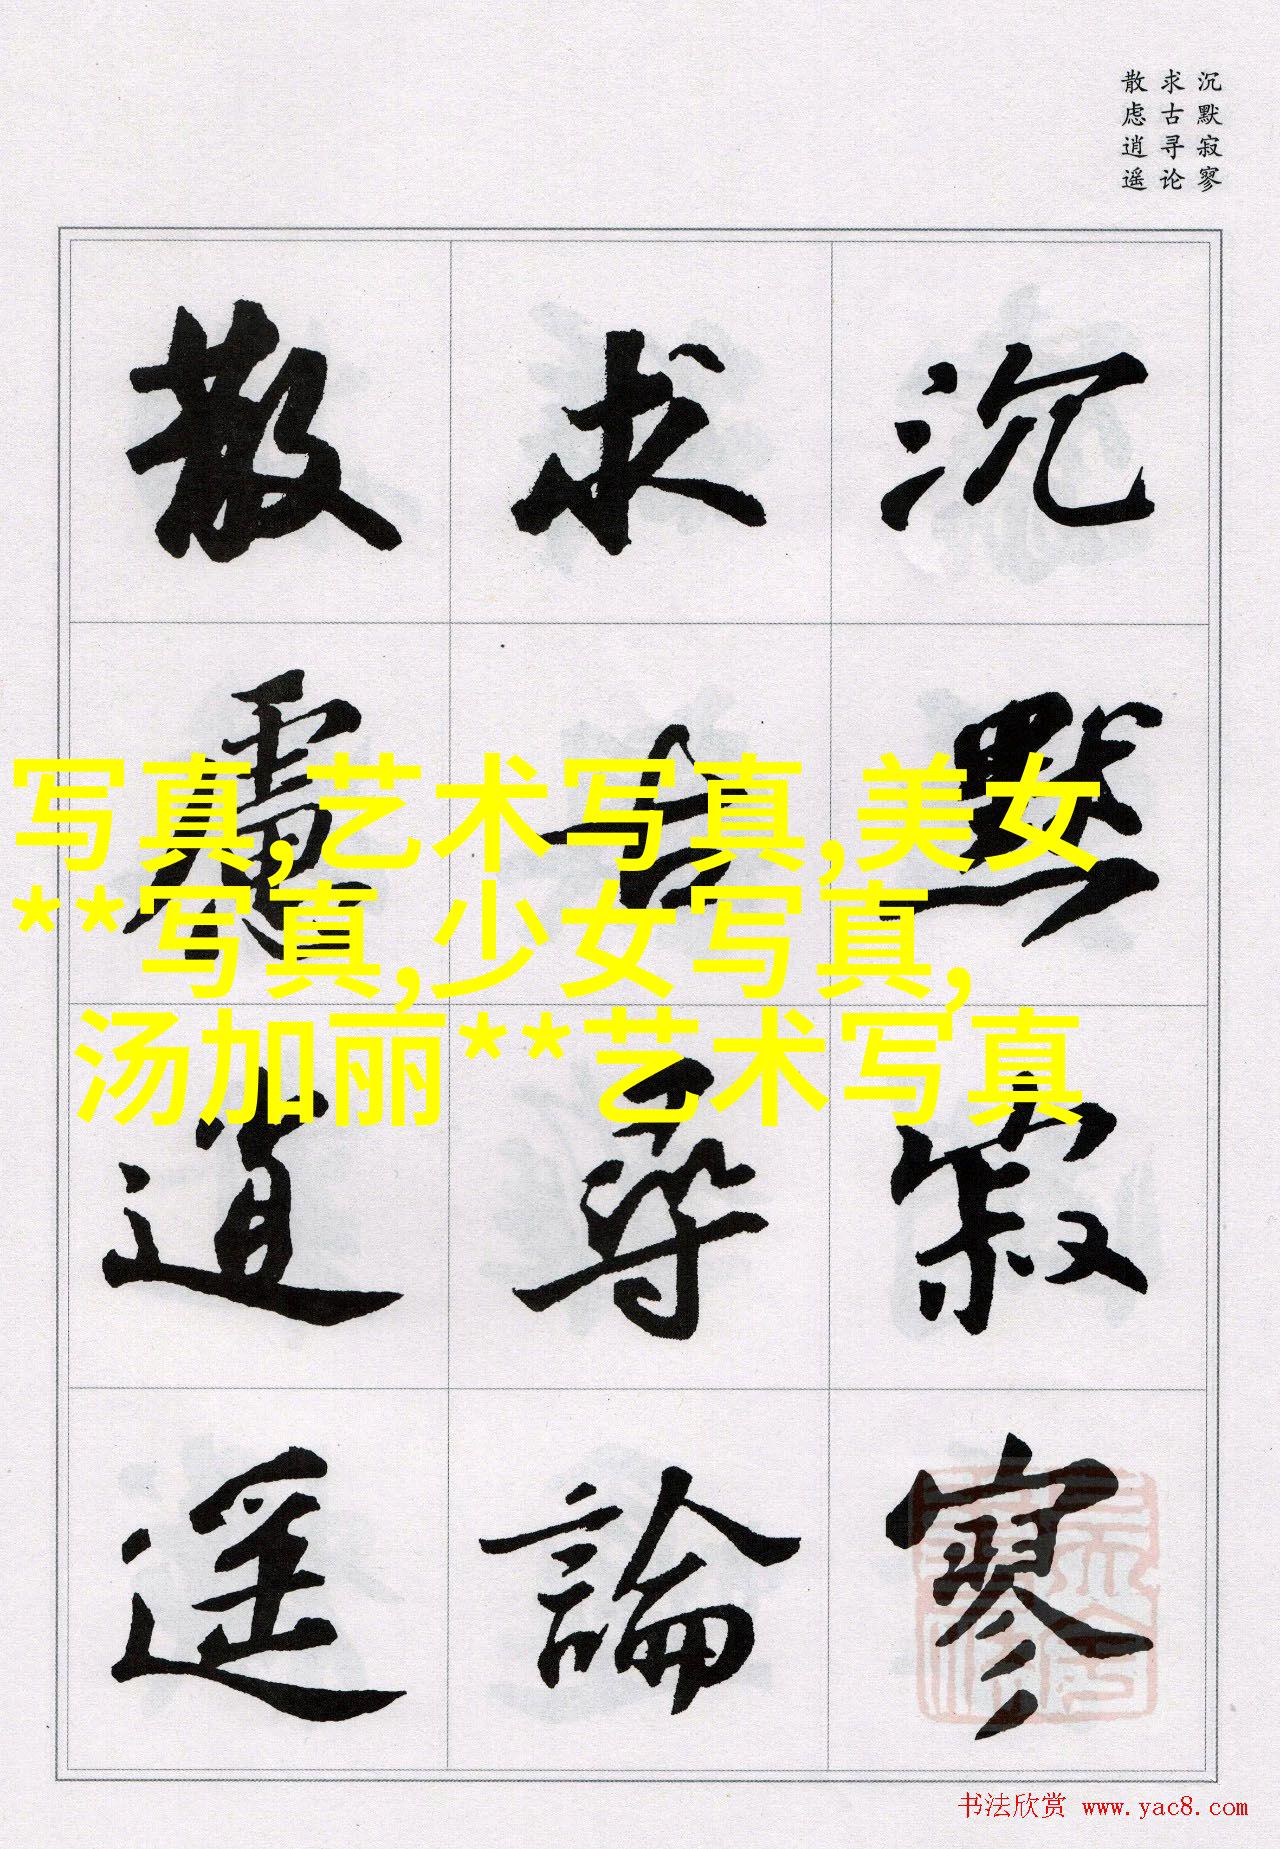 沉默寂寥
求古寻论
散虑逍遥
沉默寂寥
求古尋論
散慮逍遥
写真,艺术写真,美女
**写真,少女写真,
汤加丽**艺术写真
书法欣赏 www.yac8.com